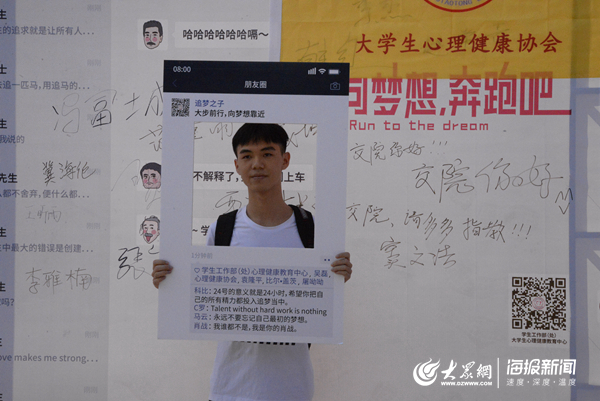 的追求就是让所有人...
哈哈哈哈哈哈哈嗝~
大学生心理健康协会
向梦想,奔跑吧
Run to the dream
08:00
朋友圈
追梦之子
大步前行,向梦想靠近
士
去一匹马,用追马的...
士
我说的
先生
么都不舍弃,便什么都...
生中最大的错误是创建...
吗?
ove makes me strong...
不解释了
上车
~学
交院你好!!!
交院你好
交院,请多多指教!!!
李雅楠
1分钟前
学生工作部(处)心理健康教育中心、吴磊,
心理健康协会,袁隆平,比尔·盖茨,屠呦呦
科比:24号的意义就是24小时,希望你把自
己的所有精力都投入追梦当中。
C罗:Talent without hard work is nothing
马云:永远不要忘记自己最初的梦想。
肖战:我谁都不是,我是你的肖战。
学生工作部(处)
大学生心理健康教育中心
大众网
WWW.DZWWW.COM
海报新闻
速度·深度·温度